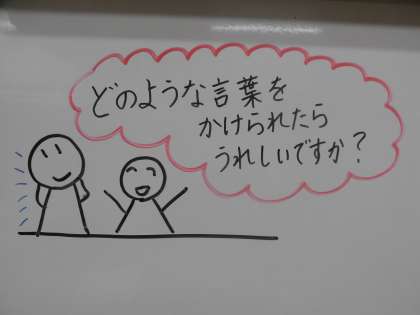 どのような言葉を
かけられたら
うれしいですか？